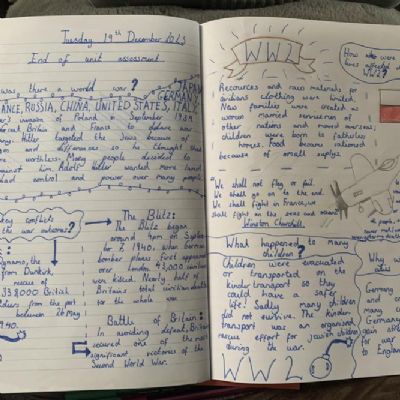 Tuesday 19th December 2023
End of unit assessment.
was there a world war?
JAPAN
GERMANY
FRANCE, RUSSIA, CHINA, UNITED STATES, ITALY
invasion of Poland September 1939
Britain and France to declare war
Hitler the Jews because
and differences so he thought that
were worthless. Many people decided to
against him. Adolf Hitler wanted more land
had control and power over many people.
key conflicts
the war outcomes?
Dynamo, the
from Dunkirk,
rescue of
338000 British
soldiers from the port
between 26 May
1940.
The Blitz:
The Blitz began
around 4pm on
7 1940. when German
bomber planes first appeared
over London. 43,000 civilians
were killed. Nearly half of
Britain's total civilian deaths
for the whole war.
Battle of Britain:
In avoiding defeat, Britain
secured one of the most
significant victories of the
Second World War.
WW2
How were
lives affected
WW2?
Resources and raw materials for
civilians clothing were limited.
New families were created as
women married servicemen of
other nations and moved overseas;
children were born to fatherless
homes. Food became rationed
because of small
"We shall not flag or fail.
We shall go on to the end.
We shall fight in France, we
shall fight on the seas and oceans"
Winston Churchill
What happened to many
children?
Children were evacuated
or transported on the
kinder transport so they
could have a safer
life. Sadly many children
did not survive. The kinder
transport was an organised
rescue effort for Jewish children
during the war.
WW2
Why w
Germany
and
many
Germany
gain
for war
to England